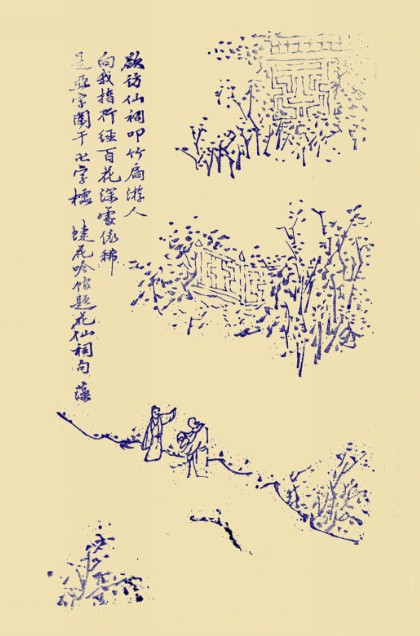 欲訪仙祠叩竹扃游人
向我指行經百花深處依稀
是亞字闌干七字櫺 蜨花吟館題花仙祠句